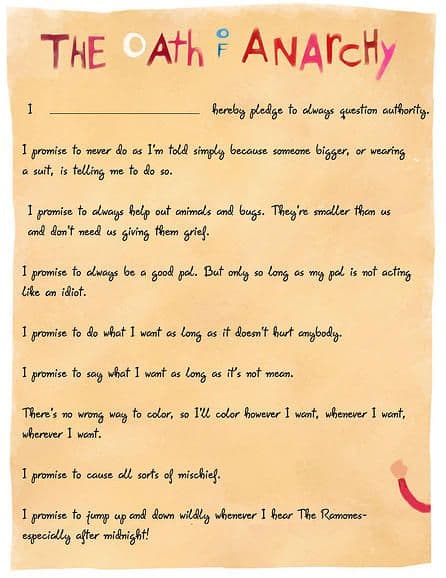 THE OATH OF ANARCHY
I ____________________ hereby pledge to always question authority.
I promise to never do as I'm told simply because someone bigger, or wearing
a suit, is telling me to do so.
I promise to always help out animals and bugs. They're smaller than us
and don't need us giving them grief.
I promise to always be a good pal. But only so long as my pal is not acting
like an idiot.
I promise to do what I want as long as it doesn't hurt anybody.
I promise to say what I want as long as it's not mean.
There's no wrong way to color, so I'll color however I want, whenever I want,
wherever I want.
I promise to cause all sorts of mischief.
I promise to jump up and down wildly whenever I hear The Ramones-
especially after midnight!